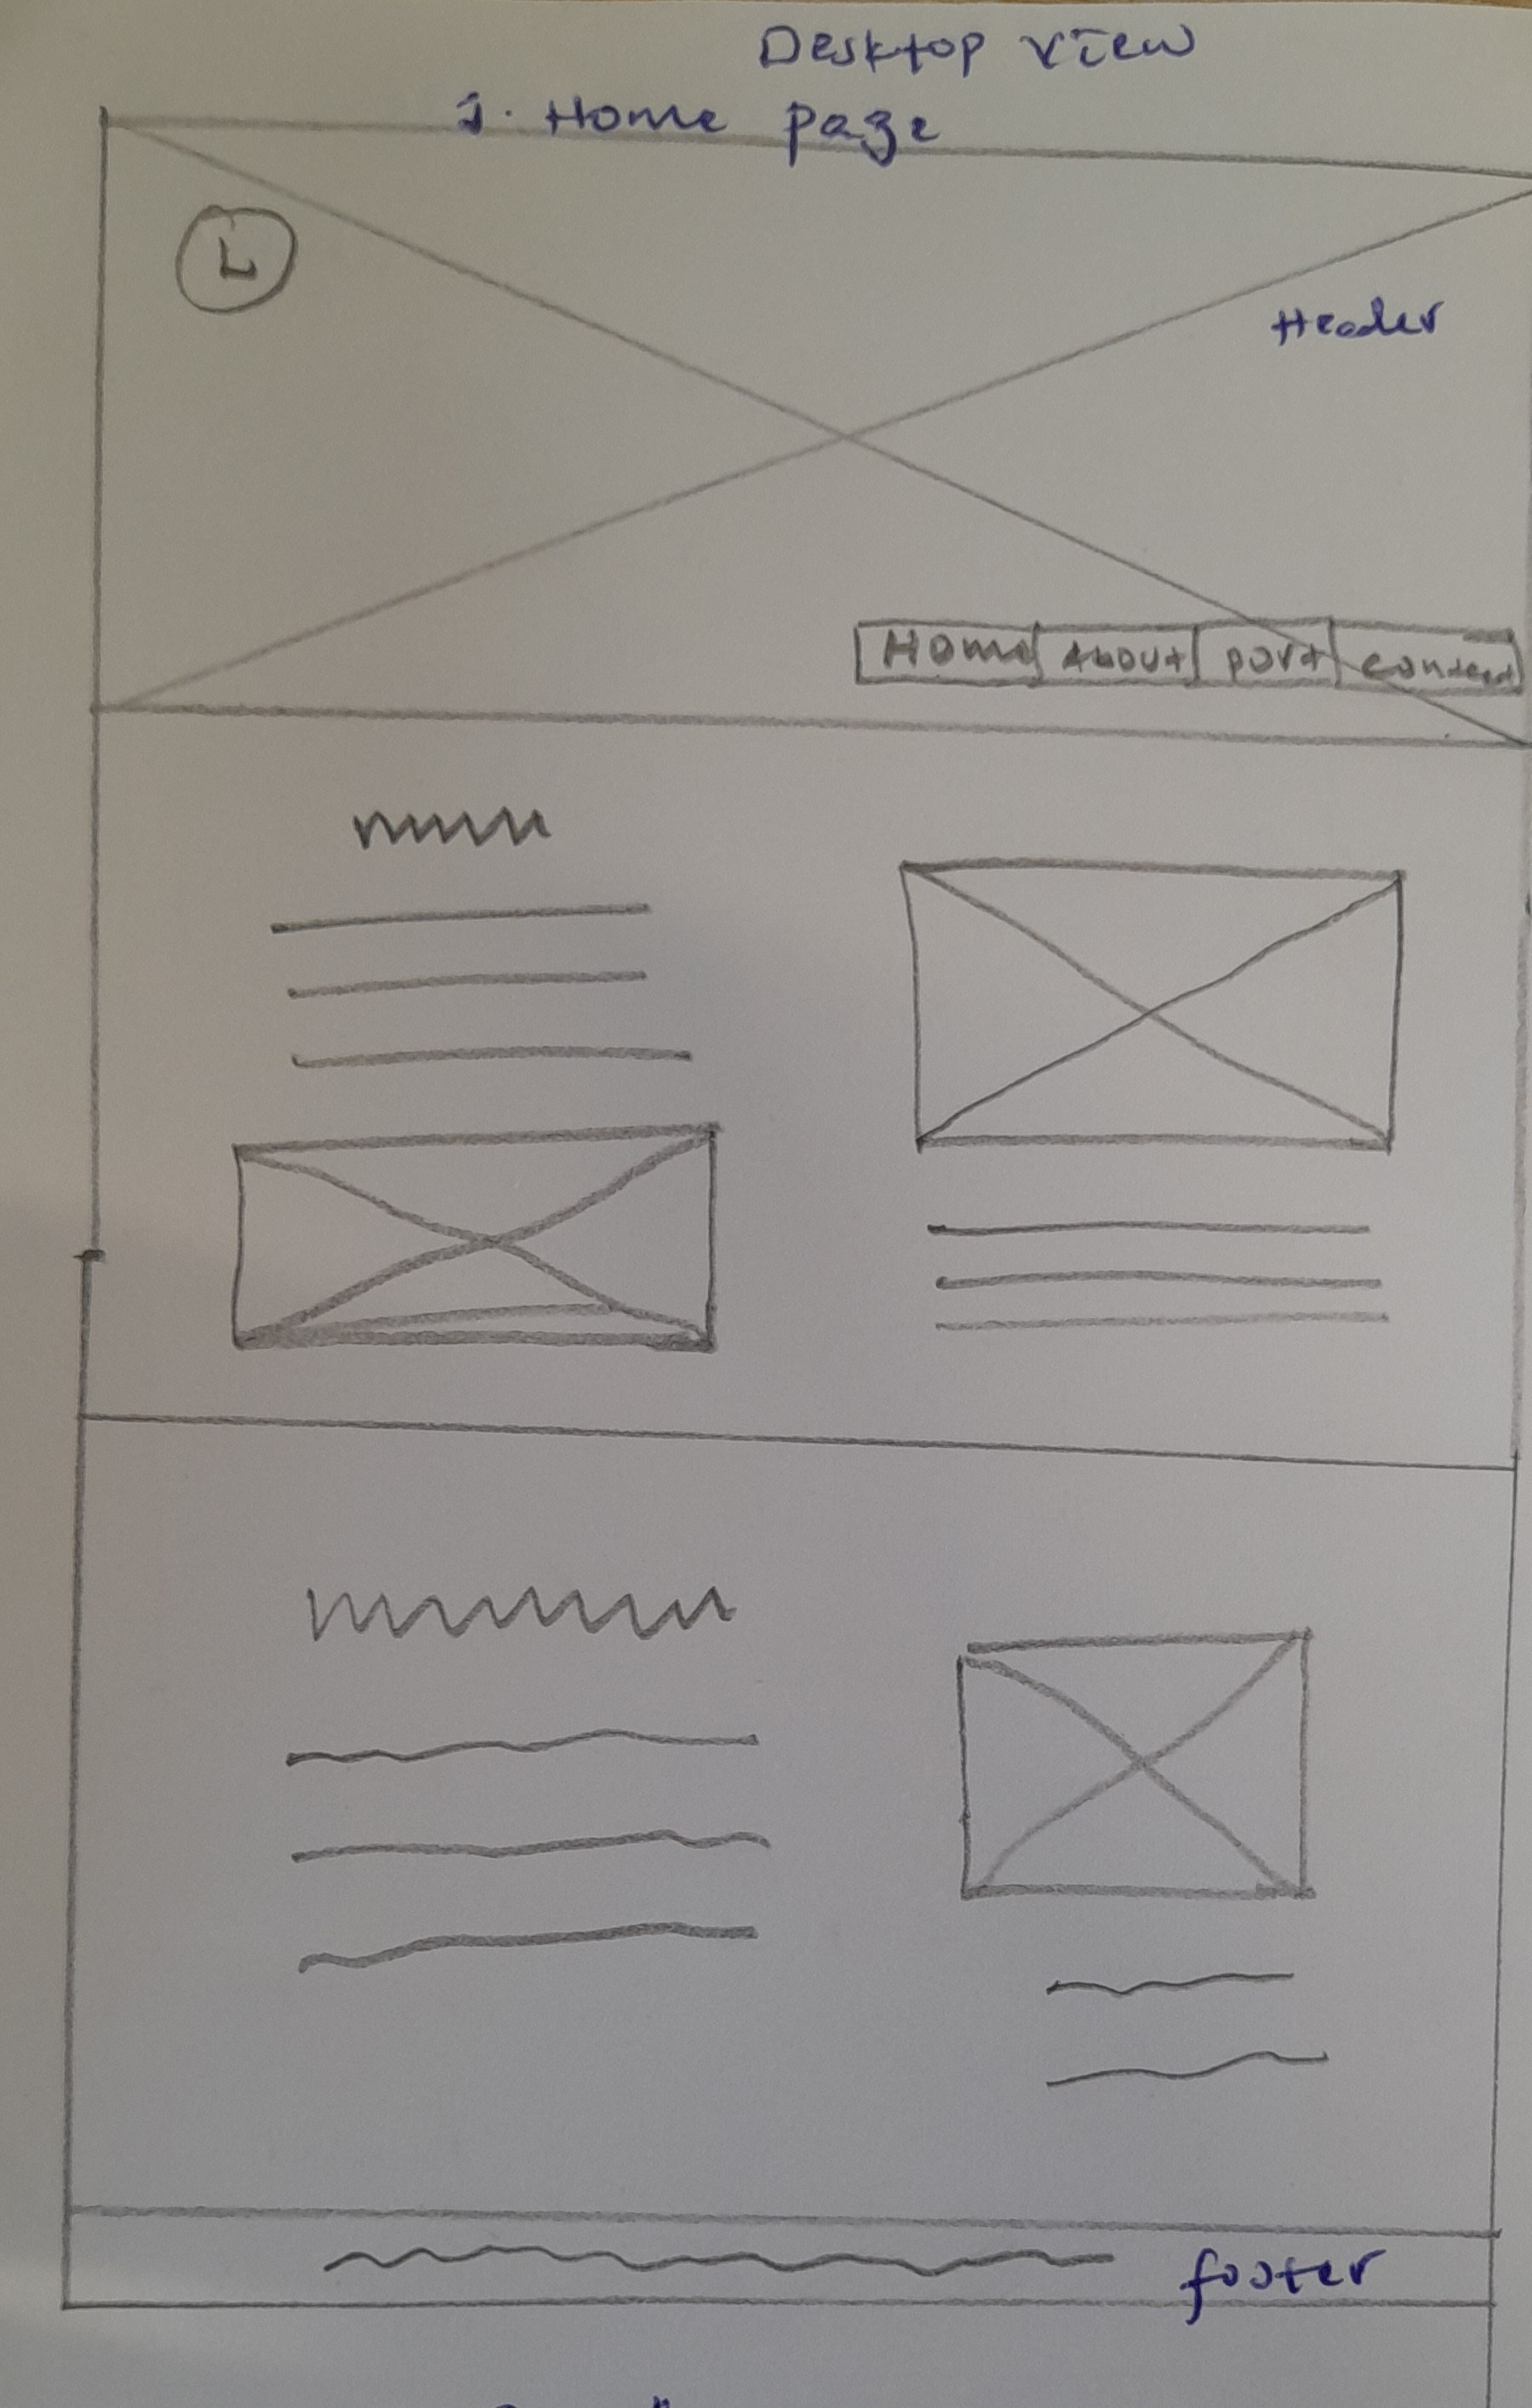 Desktop view
1. Home page
L
Header
Home About port contact
footer